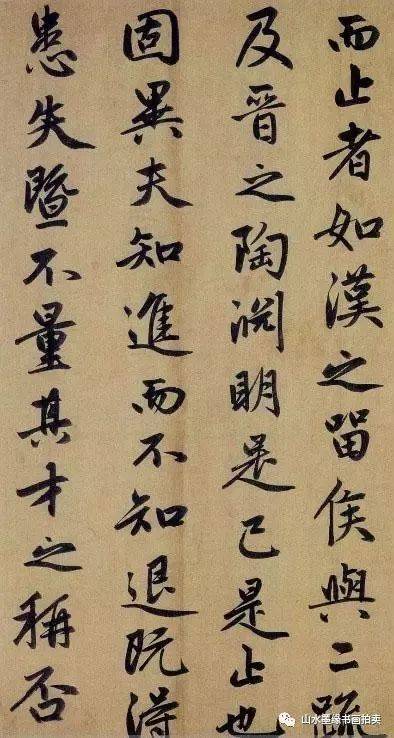 而止者如漢之留侯與二疏
及晉之陶淵明是已是止也
固異夫知進而不知退既得
患失暨不量其才之稱否
山水墨缘书画拍卖